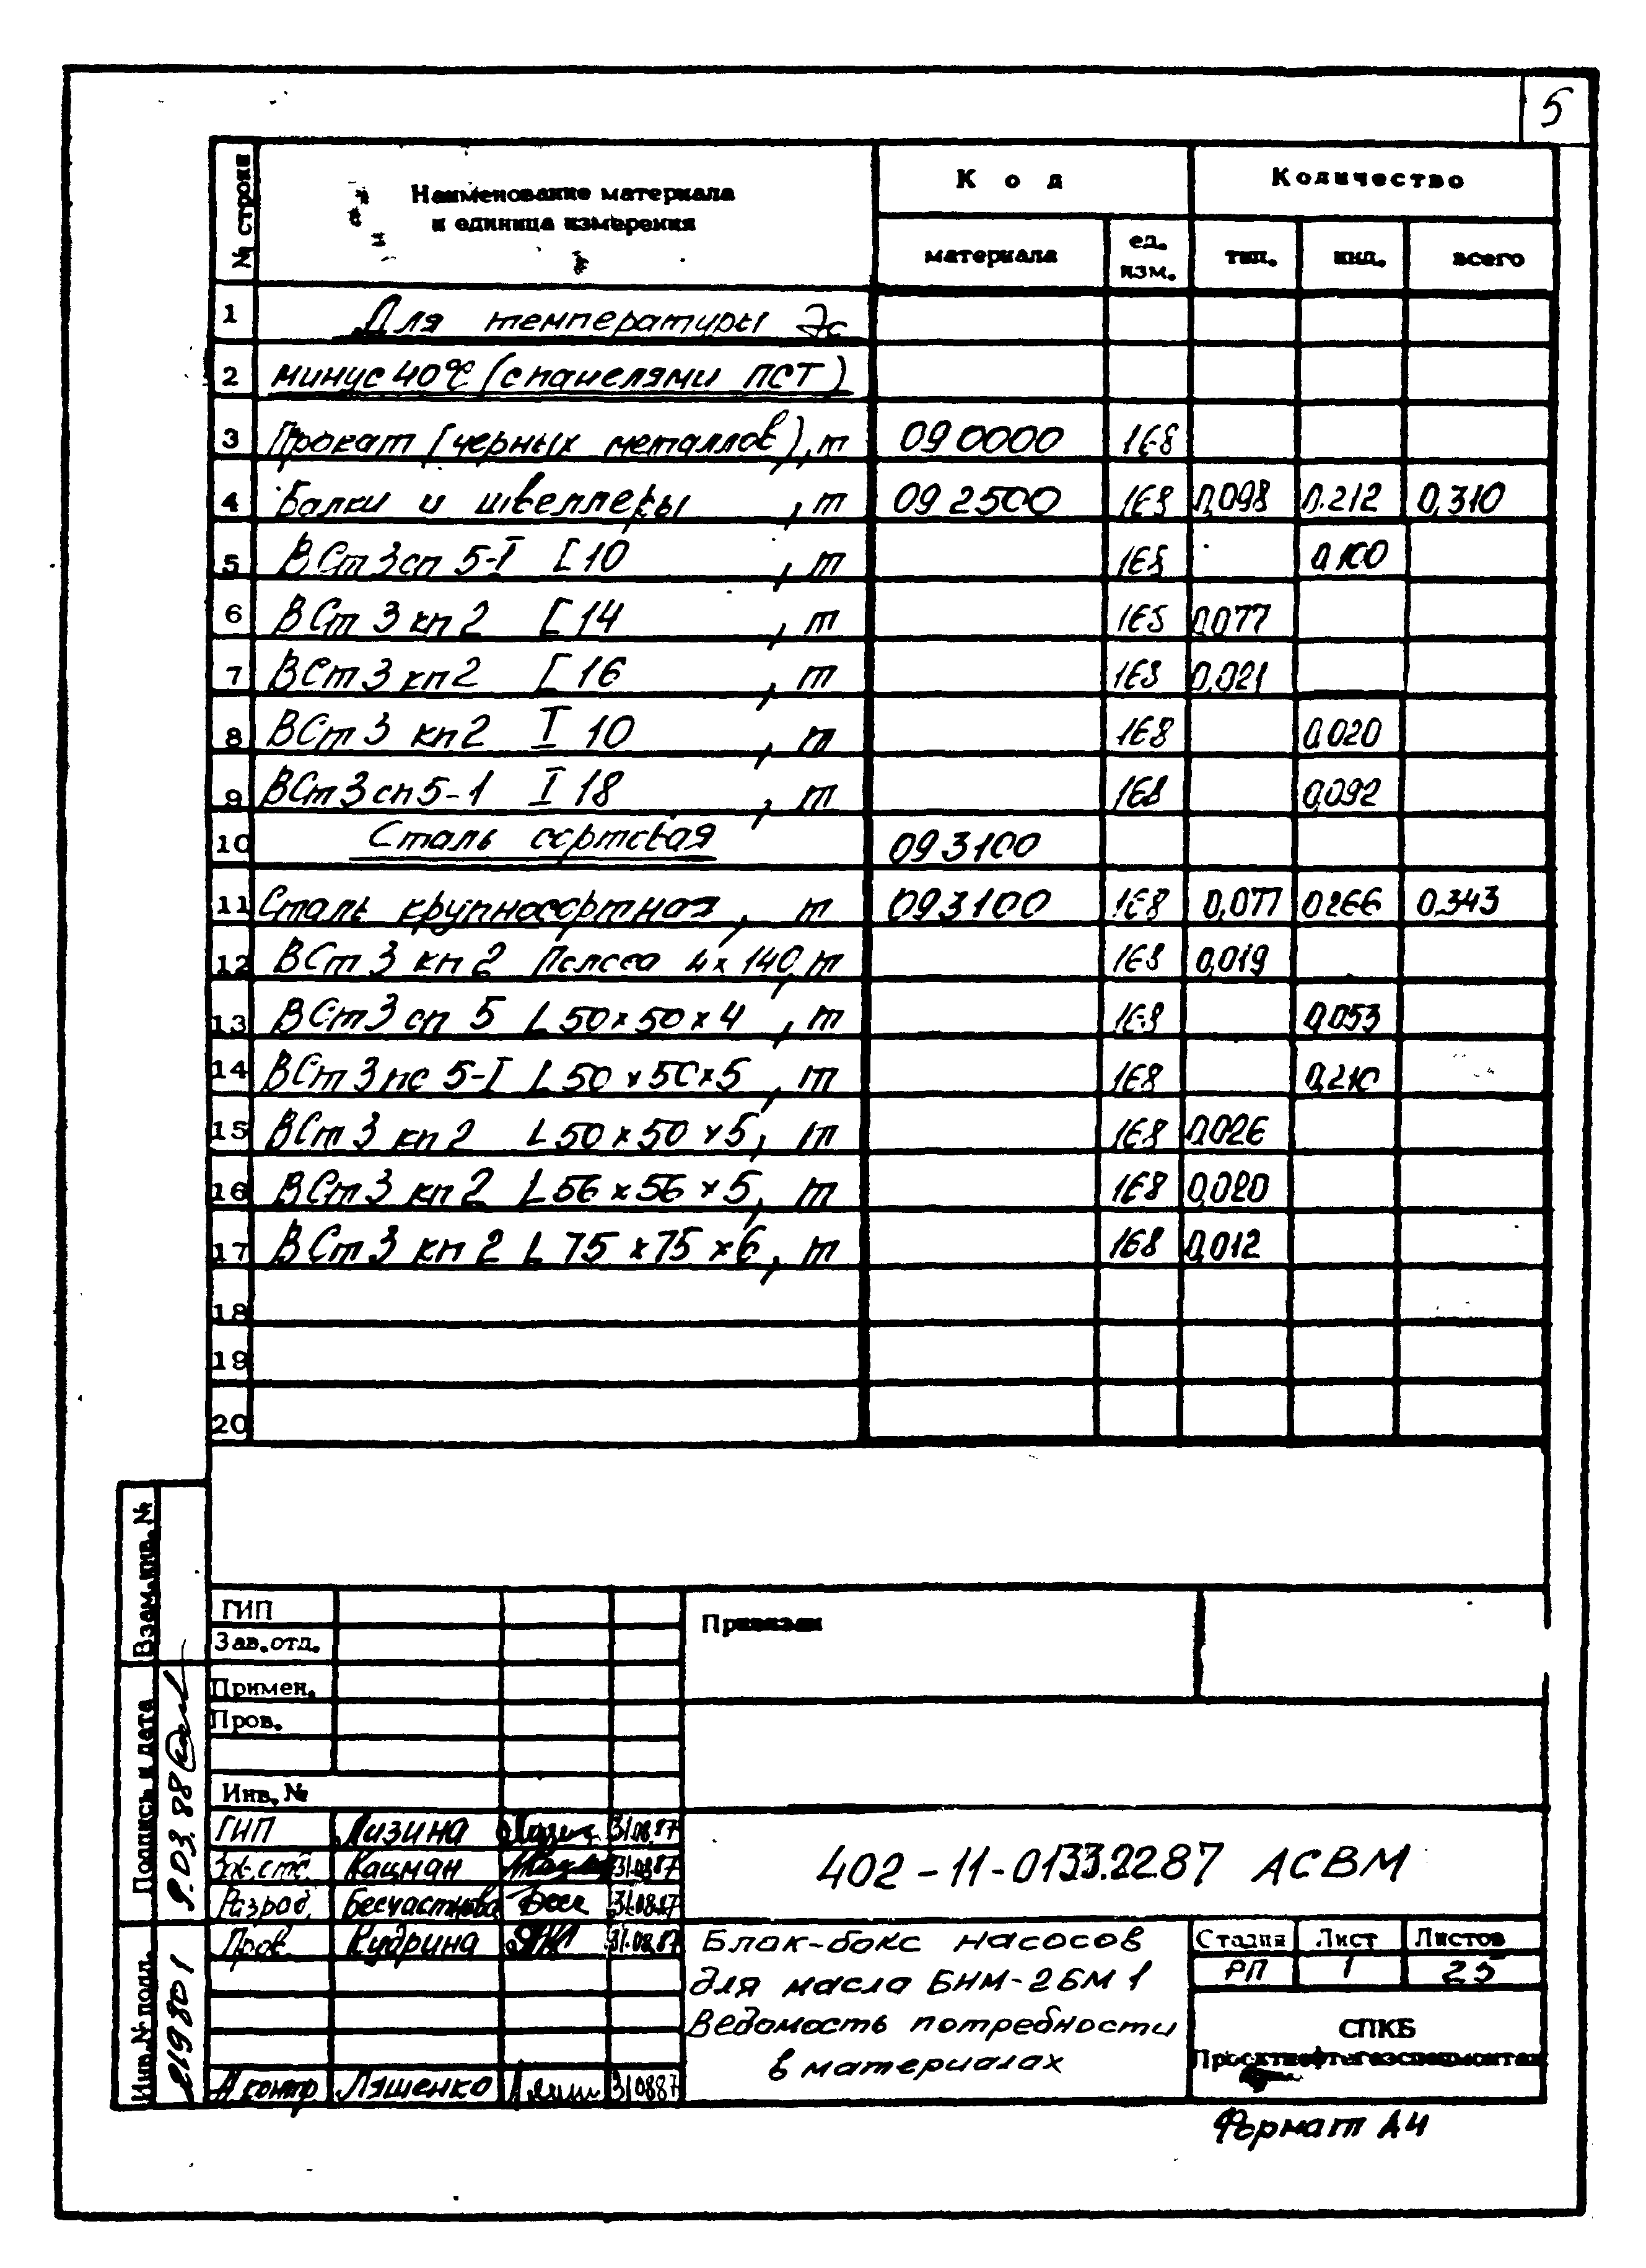 5
№ строки
Наименование материала
и единица измерения
Код
Количество
материала
ед.
изм.
тип.
инд.
всего
1 Для температуры Эс
2 минус 40°С (с панелями ПСТ)
3 Прокат (черных металлов), т 090000 168
4 Балки и швеллеры , т 092500 168 0,098 0.212 0,310
5 ВСт3сп 5-I [ 10 , т 168 0,100
6 ВСт 3 кп 2 [ 14 , т 168 0,077
7 ВСт 3 кп 2 [ 16 , т 168 0,021
8 ВСт 3 кп 2 I 10 , т 168 0,020
9 ВСт 3 сп 5-1 I 18 , т 168 0,092
10 Сталь сортовая 093100
11 Сталь крупносортная, т 093100 168 0,077 0266 0.343
12 ВСт 3 кп 2 Полоса 4х140, т 168 0,019
13 ВСт 3 сп 5 L 50х50х4 , т 168 0,053
14 ВСт 3 пс 5-I L 50х50х5 , т 168 0,210
15 ВСт 3 кп 2 L 50х50х5, т 168 0,026
16 ВСт 3 кп 2 L 56х56х5, т 168 0,020
17 ВСт 3 кп 2 L 75х75х6, т 168 0,012
18
19
20
Взам. инв. №
Подпись и дата
9.03.88
Инв. № подл.
219801
ГИП
Зав.отд.
Примен.
Пров.
Инв. №
Привязан
ГИП Лизина 31.08.87
Зав. отд. Кацман 31.08.87
Разраб. Бесчастнова 31.08.87
Пров. Кудрина 31.08.87
Н контр Ляшенко 310887
402-11-0133.22.87 АСВМ
Блок-бокс насосов
для масла БНМ-2БМ1
Ведомость потребности
в материалах
Стадия Лист Листов
РП 1 25
СПКБ
Проектнефтегазспецмонтаж
Формат А4